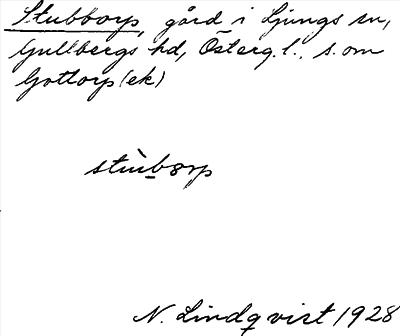 Stubborp, gård i Ljungs sn,
Gullbergs hd, Österg. l., s. om
Gottorp (ek)
stùbɔrp
N. Lindqvist 1928